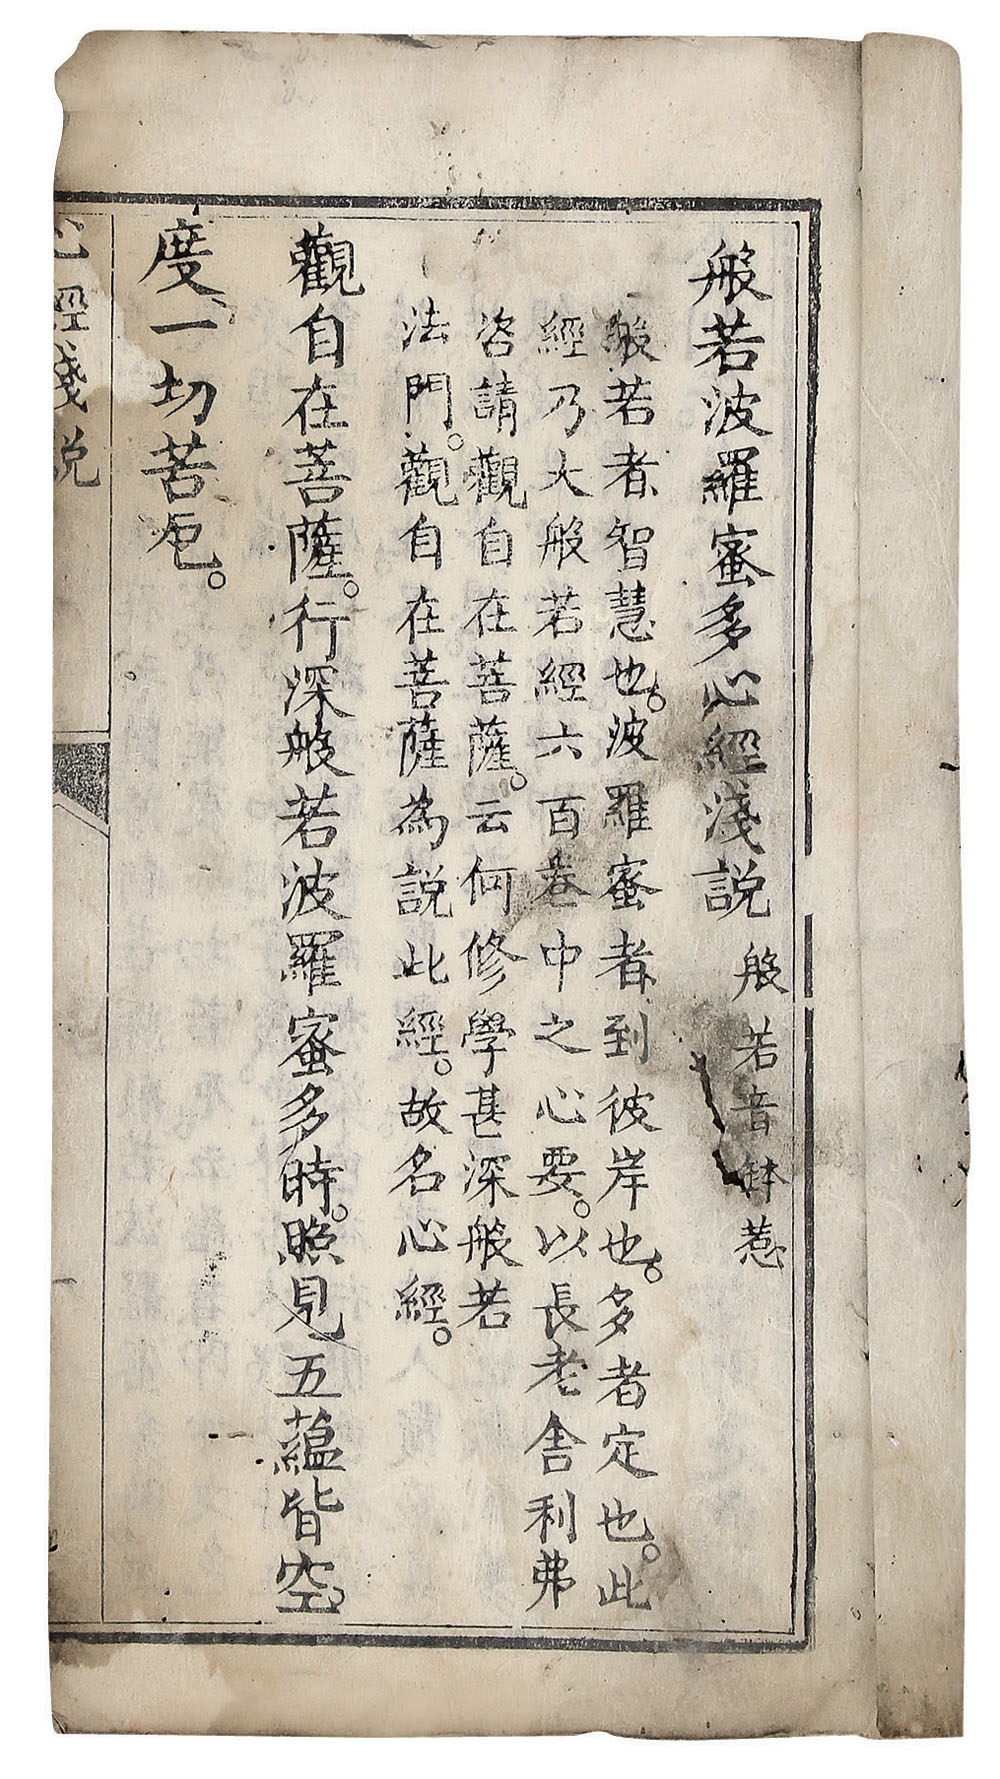 般若波羅蜜多心經淺說 般若音鉢惹
般若者智慧也。波羅蜜者到彼岸也。多者定也。此
經乃大般若經六百卷中之心要。以長老舍利弗
咨請觀自在菩薩。云何修學甚深般若
法門。觀自在菩薩為說此經。故名心經。
觀自在菩薩。行深般若波羅蜜多時。照見五蘊皆空、
度一切苦厄。
心經淺說
一